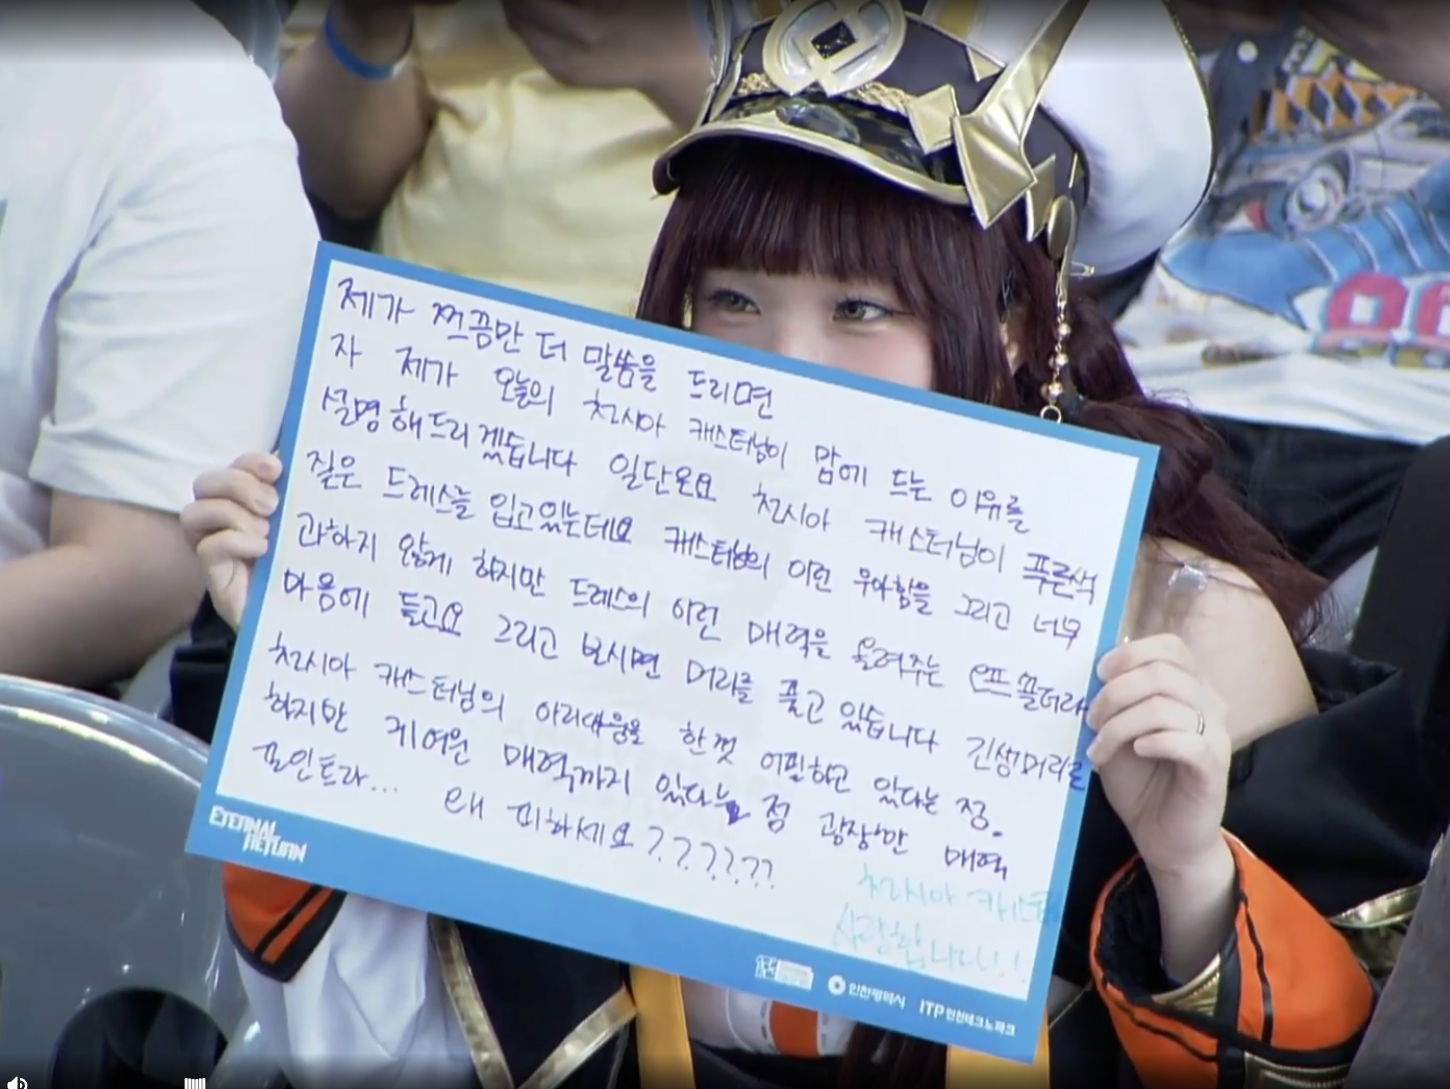 제가 쪼끔만 더 말씀을 드리면
자 제가 오늘의 천시아 캐스터님이 맘에 드는 이유를
설명해드리겠듭니다 일단은요 천시아 캐스터님이 푸른색
짙은 드레스를 입고있는데요 캐스터님의 이런 우아함을 그리고 너무
과하지 않게 하지만 드레스의 이런 매력을 올려주는 오프숄더라
마음에 들고요 그리고 보시면 머리를 풀고 있습니다 긴생머리로
천시아 캐스터님의 아리따움을 한껏 어필하고 있다는 점.
하지만 귀여운 매력까지 있다는 점 굉장한 매력
포인트라... 왜 피하세요??????
천시아 캐스터
사랑합니다!!
ETERNAL RETURN
인천광역시
ITP 인천테크노파크